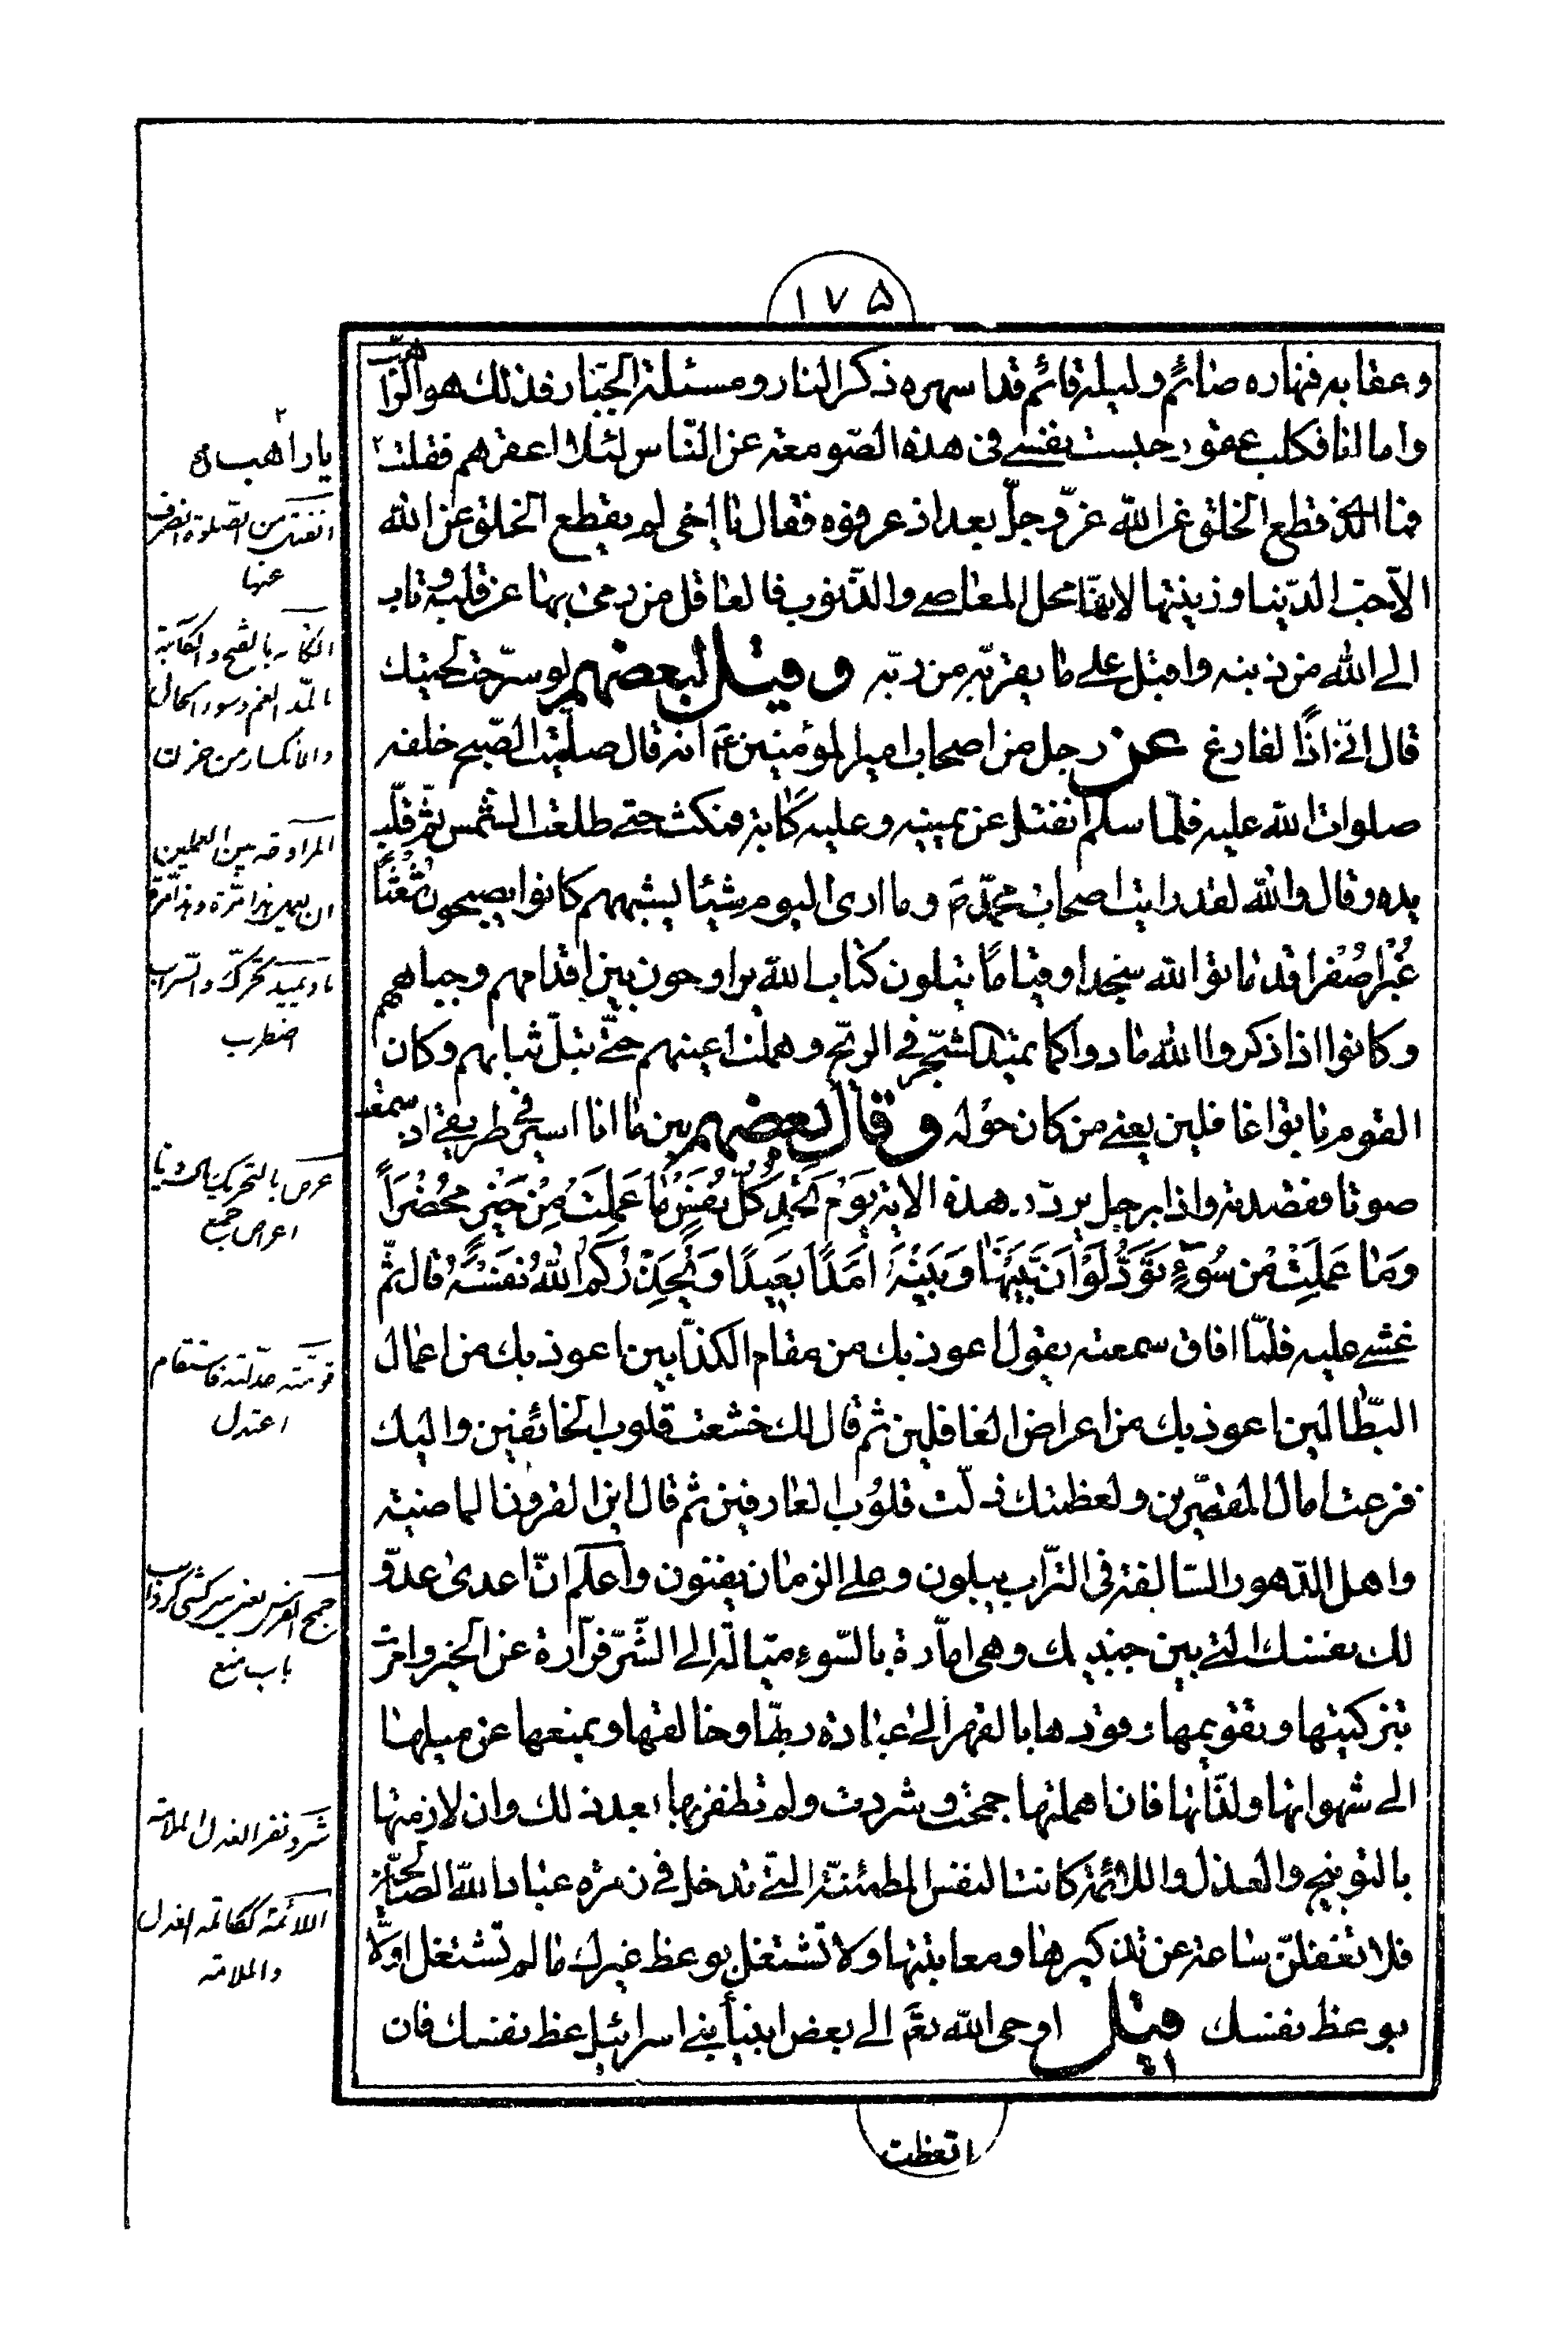 ١٧٥
وعقابه فنهاره صائم وليله قائم قد اسهره ذكر النار ومسئلة الجبّار فذلك هو الرّاهب
واما انا فكلب عقور حبست نفسى فى هذه الصّومعة عن النّاس لئلا اعقرهم فقلت ٢
فما الّذى قطع الخلق عن اللّه عزّ وجلّ بعد اذ عرفوه فقال يا اخى لم يقطع الخلق عن اللّه
الّا حبّ الدّنيا وزينتها لانها محل المعاصى والذّنوب فالعاقل من رمى بها عن قلبه وتاب
الى اللّه من ذنبه واقبل على ما يقرّبه من ربّه وقيل لبعضهم لو سرّحت لحيتك
قال انّى اذًا لفارغ عن رجل من اصحاب امير المؤمنين ع انه قال صلّيت الصّبح خلفه
صلوات اللّه عليه فلمّا سلّم انفتل عن يمينه وعليه كَابة فمكث حتى طلعت الشّمس ثمّ قلّب
يده وقال واللّه لقد رايت اصحاب محمّد ص وما ارى اليوم شيئا يشبههم كانوا يصبحون شُعْثًا
غُبْرا صُفْرا قد باتوا للّه سجدا وقياما يتلون كتاب اللّه يراوحون بين اقدامهم وجباههم
وكانوا اذا ذكروا اللّه مادوا كما يميد الشّجر فى الريح وهملت اعينهم حتّى تبلّ ثيابهم وكان
القوم باتوا غافلين يعنى من كان حوله وقال بعضهم بين ما انا اسير فى طريقى اذ سمعت
صوتا فقصدته واذا برجل يردّد هذه الاية يَوْمَ تَجِدُ كُلُّ نَفْسٍ مَا عَمِلَتْ مِنْ خَيْرٍ مُحْضَرًا
وَمَا عَمِلَتْ مِنْ سُوءٍ تَوَدُّ لَوْ اَنَّ بَيْنَهَا وَبَيْنَهُ اَمَدًا بَعِيدًا وَيُحَذِّرُكُمُ اللّٰهُ نَفْسَهُ قال ثمّ
غشى عليه فلمّا افاق سمعته يقول اعوذ بك من مقام الكذّابين اعوذ بك من اعمال
البطّالين اعوذ بك من اعراض الغافلين ثم قال لك خشعت قلوب الخائفين واليك
فزعت امال المقصّرين ولعظمتك ذلّت قلوب العارفين ثم قال اين القرون الماضية
واهل الدّهور السّالفة فى التّراب يبلون وعلى الزمان يفنون واعلم انّ اعدى عدوّ
لك نفسك التى بين جنبيك وهى امّارة بالسّوء ميّالة الى الشّرّ فرّارة عن الخير وامرت
بتزكيتها وتقويمها وقودها بالقهر الى عبادة ربّها وخالقها ويمنعها عن ميلها
الى شهواتها ولذّاتها فان اهملتها جمحت وشردت ولم تظفر بها بعد ذلك وان لازمتها
بالتوبيخ والعذل واللائمة كانت النفس المطمئنة الّتى تدخل فى زمرة عباد اللّه الصّالحين
فلا تغفلنّ ساعة عن تذكيرها ومعاتبتها ولا تشتغل بوعظ غيرك ما لم تشتغل اوّلا
بوعظ نفسك قيل اوحى اللّه تعَ الى بعض انبيآء بنى اسرائيل عظ نفسك فان
اتعظت
٢
يا راهب
انفتل من الصّلوة انصرف
عنها
الكَأبة بالفتح والكآبة
بالمدّ الغم وسوء الحال
والانكسار من حزن
المراوحة بين العملين
ان يعمل هذا مرّة وهذا مرّة
ماد يميد تحرّك والسّراب
اضطرب
عرض بالتحريك
اعراض جمع
قوّمته عدّلته فاستقام
اعتدل
جمح الفرس يعنى سركشى كرد
باب منع
شرد نفر العذل الملامة
اللائمة العذل
والملامة